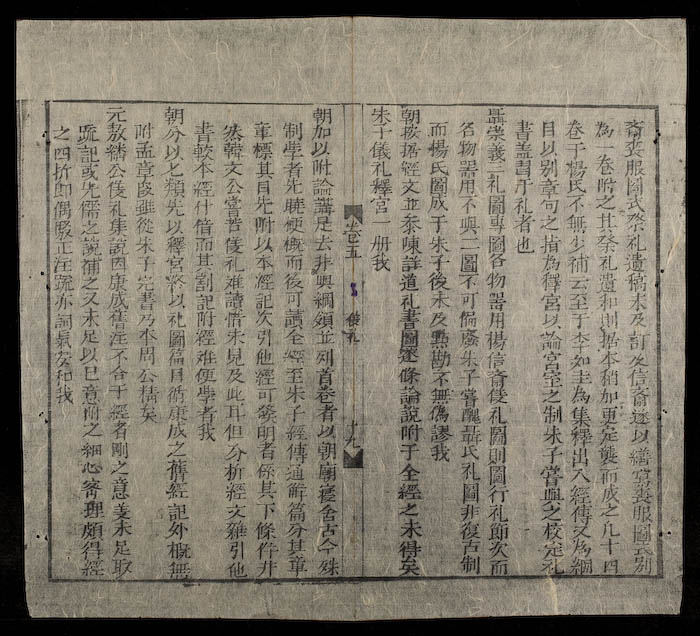 齋喪服圖式祭礼遺稿未及訂及信齋遂以繕寫喪服圖式別
為一卷附之其祭礼遺和則据本稍加更定襲而成之凡十四
卷于楊氏不無少補云至于李如圭為集釋出入經傳又為綱
目以別章句之指為釋宮以論宮室之制朱子嘗與之校定礼
書盖習于礼者也
聶崇義三礼圖專圖名物器用楊信齋儀礼圖則圖行礼節次而
名物器用不與二圖不可偏廢朱子嘗醜聶氏礼圖非復古制
而楊氏圖成于朱子後未及點勘不無偽謬我
朝按据經文並泰陳詳道礼書圖逐條論說附于全經之末得矣
朱子儀礼釋宮一册我
卷五
儀礼
十九
朝加以附論講足去非與綱領並列首卷者以朝廟寢舍古今殊
制學者先曉梗概而後可讀全經至朱子經傳通解篇分其章
章標其目先附以本經記次引他經可發明者係其下條件井
然韓文公嘗苦儀礼難讀惜未見及此耳但分析經文雜引他
書較本經什倍而其割記附經难便學者我
朝分以七類先以釋宮終以礼圖篇目循康成之舊經記外概無
附孟章段雖從朱子完書乃本周公精矣
元敖繼公儀礼集說因康成舊注不合于經者刪之意義未足取
疏記或先儒之說補之又未足以己意附之細心密理頗得經
之四折即偶駁正注疏亦詞氣安和我